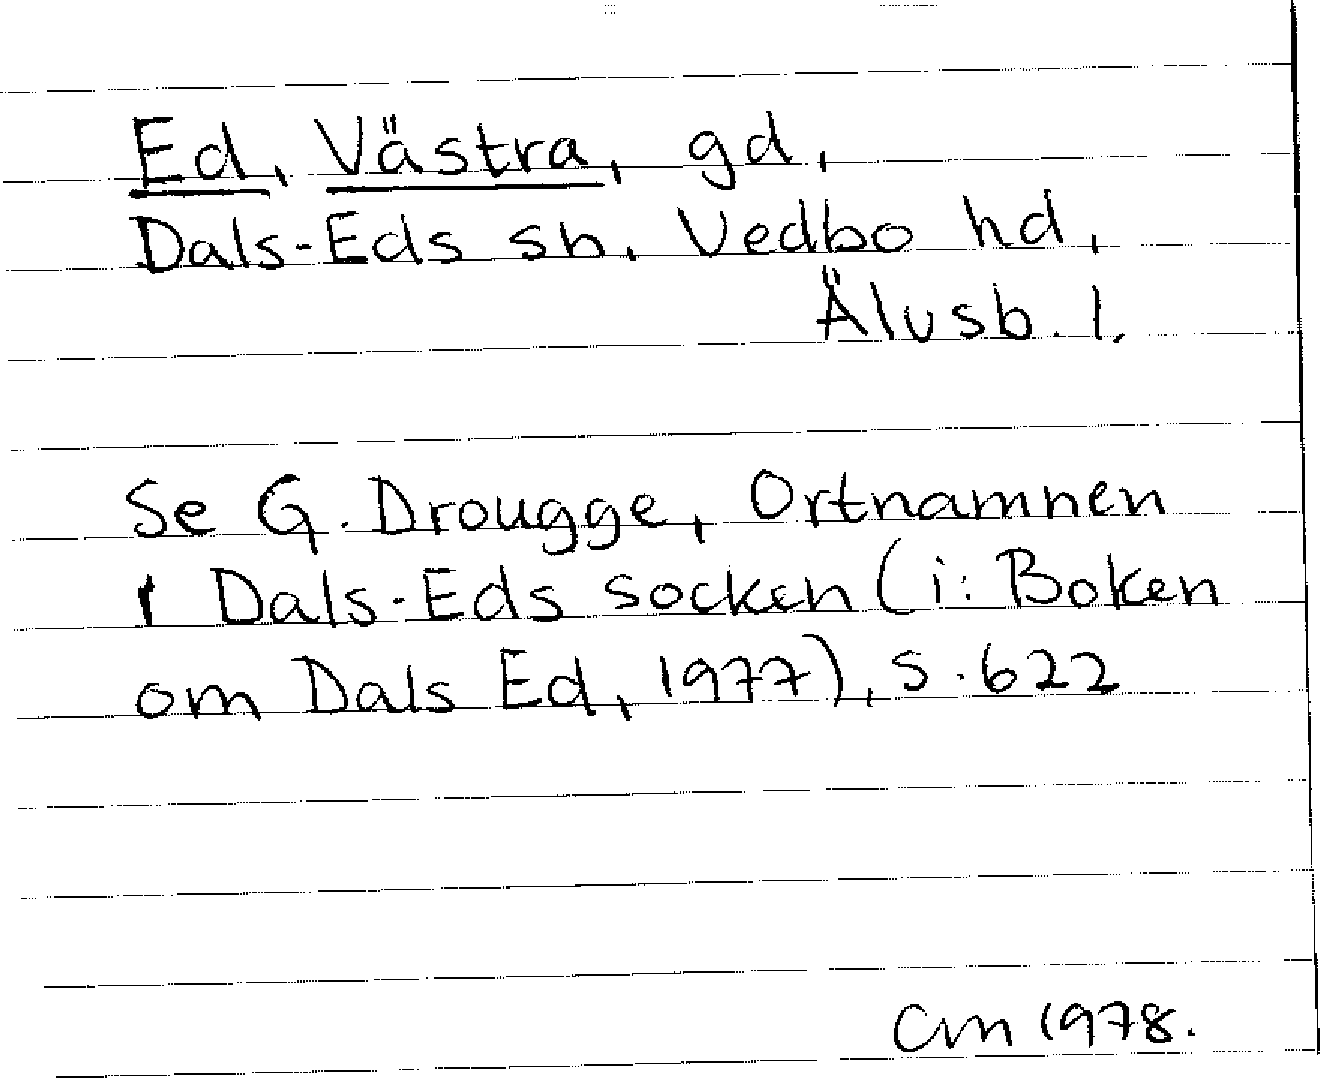 Ed, Västra, gd,
Dals-Eds sn, Vedbo hd,
Älvsb. l.
Se G. Drougge, Ortnamnen
i Dals-Eds socken (i: Boken
om Dals Ed, 1977), s. 622
Cm 1978.